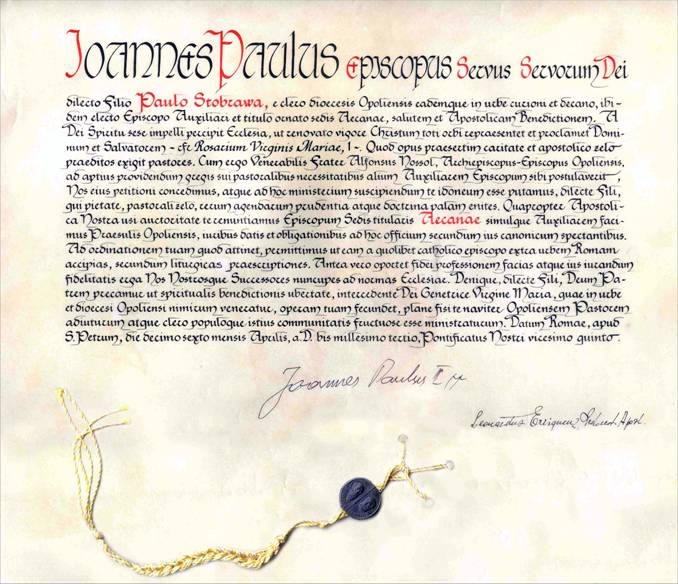 Ioannes Paulus Episcopus Servus Servorum Dei
dilecto Filio Paulo Stobrawa, e clero dioecesis Opoliensis eademque in urbe curioni et decano, ibi-
dem electo Episcopo Auxiliari et titulo ornato sedis Aecanae, salutem et Apostolicam Benedictionem. A
Dei Spiritu sese impelli percipit Ecclesia, ut renovato vigore Christum toti orbi repraesentet et proclamet Domi-
num et Salvatorem - cfr Rosarium Virginis Mariae, 1 -. Quod opus praesertim caritate et apostolico zelo
praeditos exigit pastores. Cum ergo Venerabilis Frater Alfonsus Nossol, Archiepiscopus-Episcopus Opoliensis,
ad aptius providendum gregis sui pastoralibus necessitatibus alium Auxiliarem Episcopum sibi postulaverit,
Nos eius petitioni concedimus, atque ad hoc ministerium suscipiendum te idoneum esse putamus, dilecte Fili,
qui pietate, pastorali zelo, rerum agendarum prudentia atque doctrina palam enites. Quapropter Apostoli-
ca Nostra usi auctoritate te renuntiamus Episcopum Sedis titularis Aecanae simulque Auxiliarem faci-
mus Praesulis Opoliensis, iuribus datis et obligationibus ad hoc officium secundum ius canonicum spectantibus.
Ad ordinationem tuam quod attinet, permittimus ut eam a quolibet catholico episcopo extra urbem Romam
accipias, secundum liturgicas praescriptiones. Antea vero oportet fidei professionem facias atque ius iurandum
fidelitatis erga Nos Nostrosque Successores nuncupes ad normas Ecclesiae. Denique, dilecte Fili, Deum Pa-
trem precamur ut spiritualis benedictionis ubertate, intercedente Dei Genetrice Virgine Maria, quae in urbe
et dioecesi Opoliensi nimirum veneratur, operam tuam fecundet, plane fisi te naviter Opoliensem Pastorem
adiuturum atque clero populoque istius communitatis fructuose esse ministraturum. Datum Romae, apud
S. Petrum, die decimo sexto mensis Aprilis, a.D. bis millesimo tertio, Pontificatus Nostri vicesimo quinto.
Joannes Paulus II
Leonardus Erriquenz